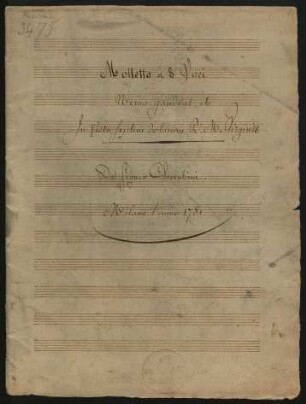 3475
Mottetto a 8 Voci
Nemo gaudeat etc
In festo septem dolorum B. M. Virginis
Del Signor Cherubini
Milano l'anno 1781